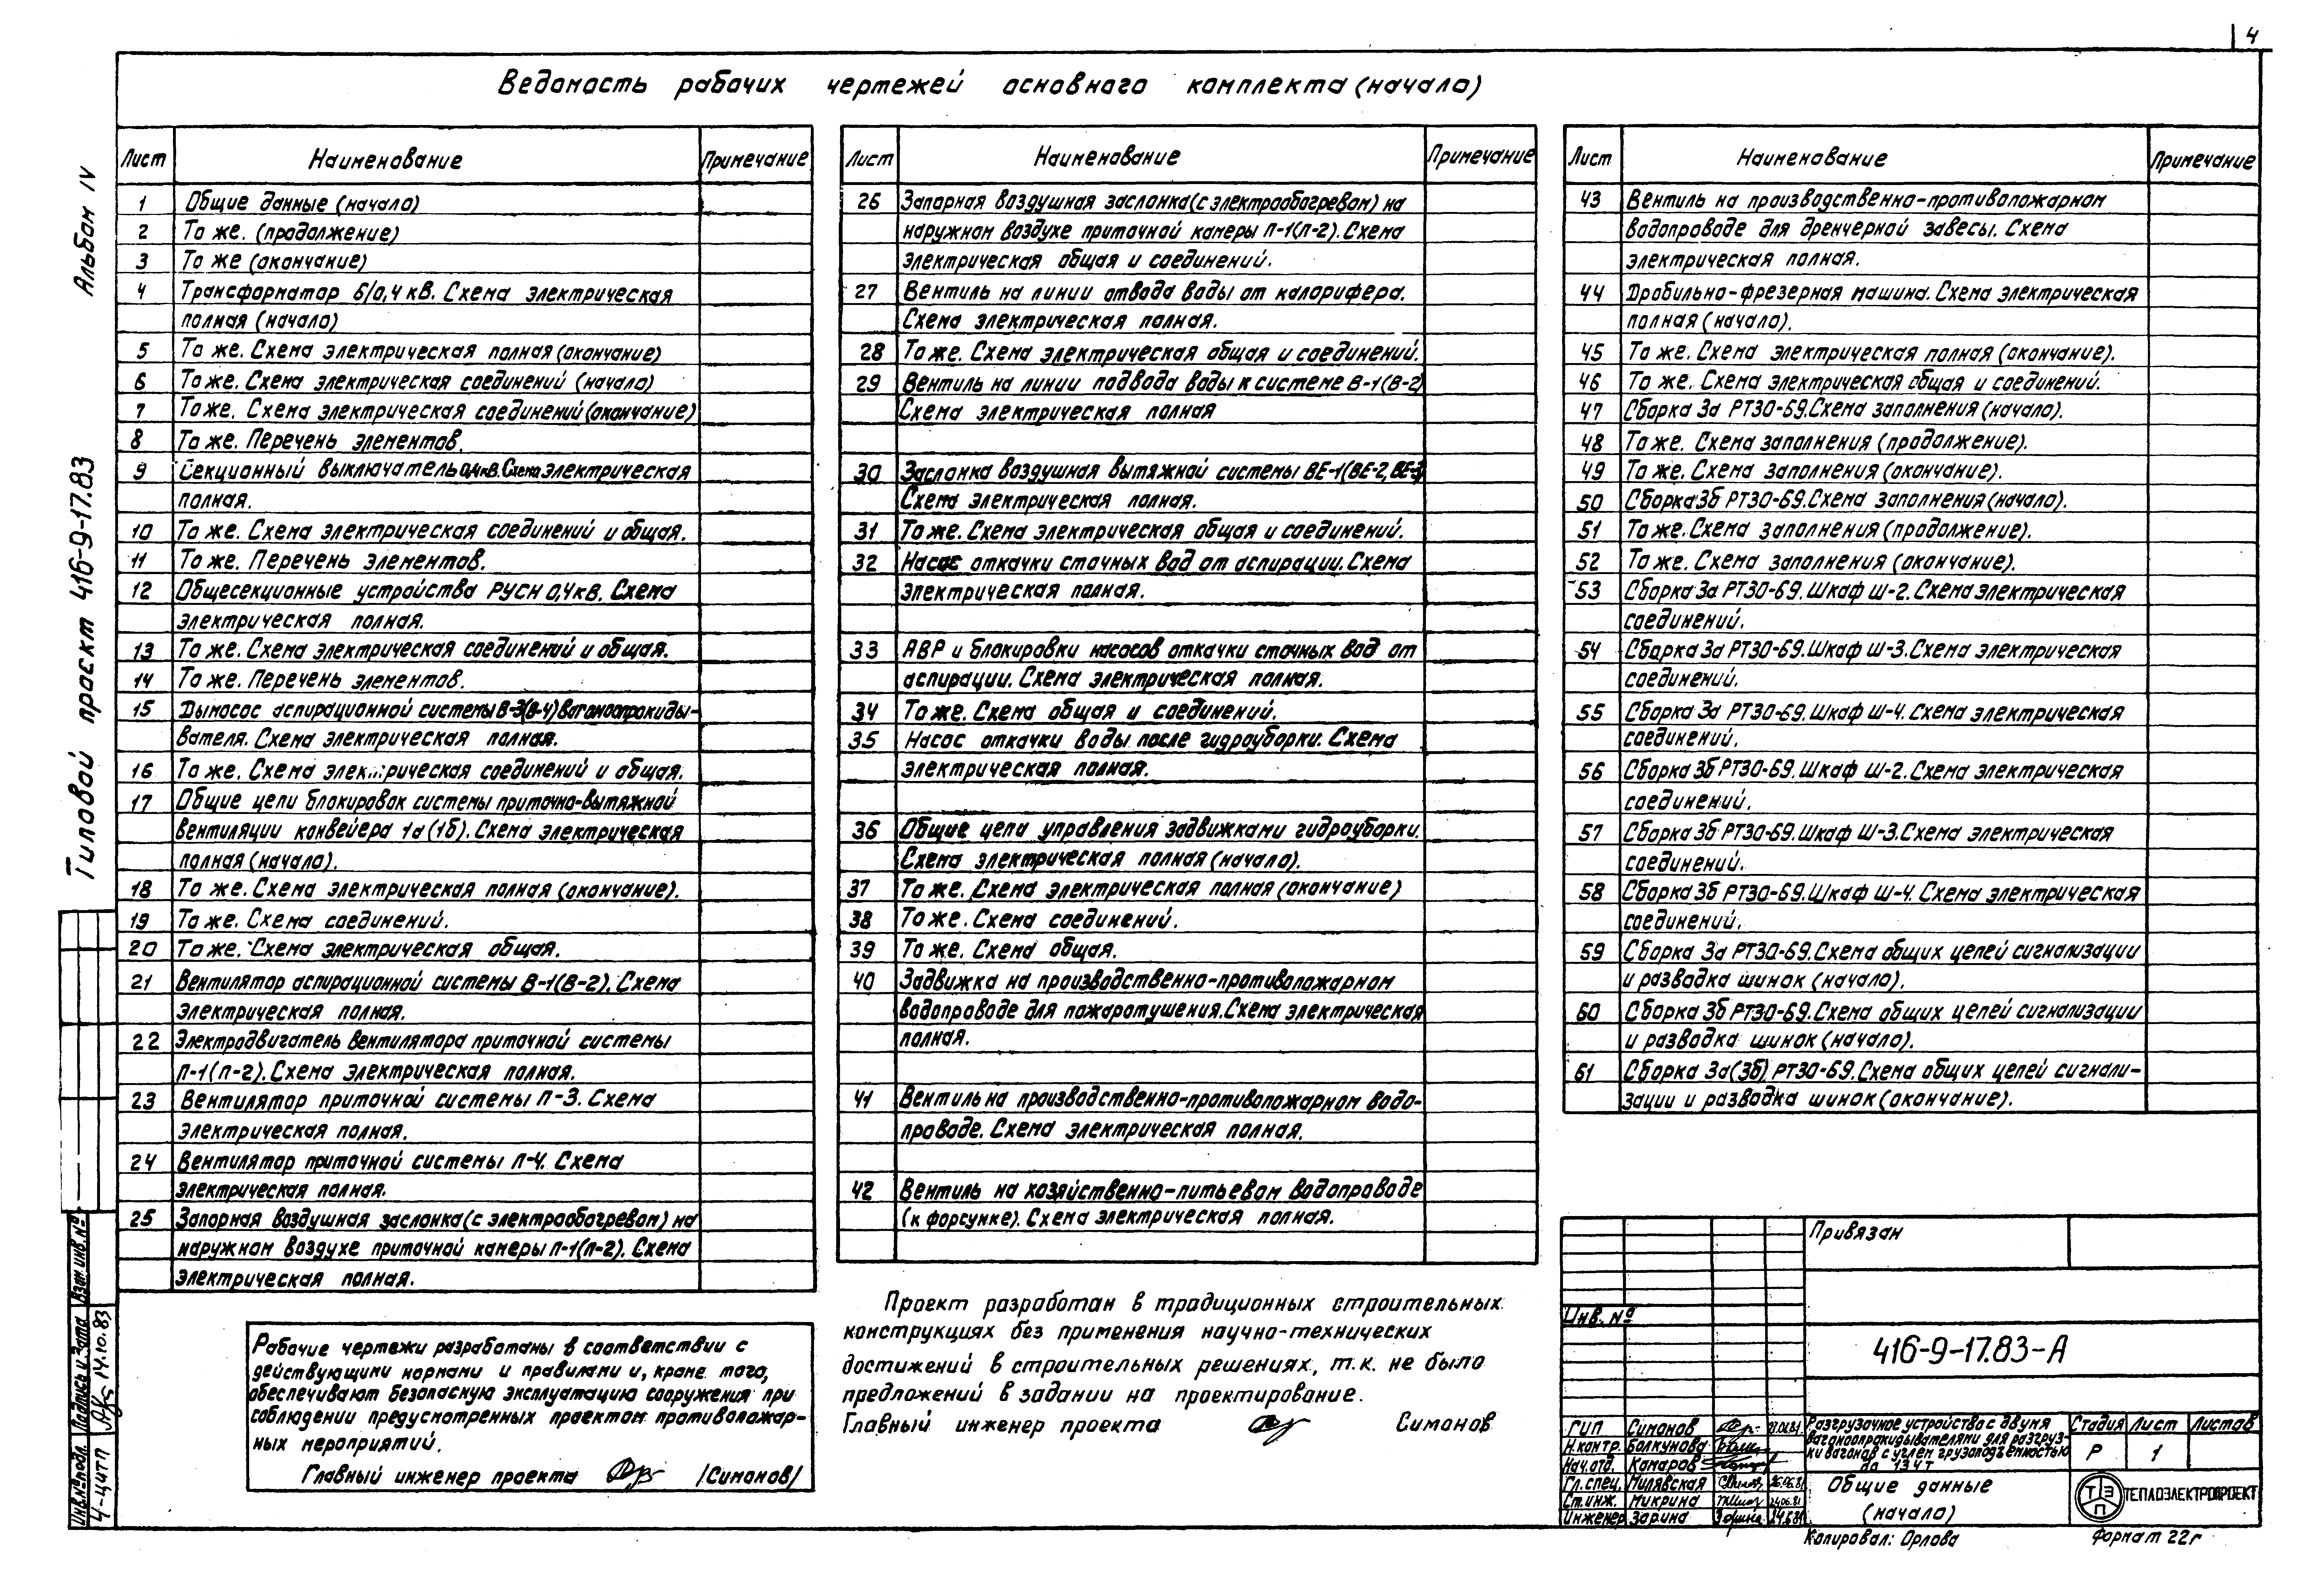 4
Ведомость рабочих чертежей основного комплекта (начало)
Альбом IV
Типовой проект 416-9-17.83
Лист Наименование Примечание
1 Общие данные (начало)
2 То же. (продолжение)
3 То же (окончание)
4 Трансформатор 6/0,4 кВ. Схема электрическая
полная (начало)
5 То же. Схема электрическая полная (окончание)
6 То же. Схема электрическая соединений (начало)
7 То же. Схема электрическая соединений (окончание)
8 То же. Перечень элементов.
9 Секционный выключатель 0,4 кВ. Схема электрическая
полная.
10 То же. Схема электрическая соединений и общая.
11 То же. Перечень элементов.
12 Общесекционные устройства РУСН 0,4 кВ. Схема
электрическая полная.
13 То же. Схема электрическая соединений и общая.
14 То же. Перечень элементов.
15 Дымосос аспирационной системы В-3(В-4) вагоноопрокиды-
вателя. Схема электрическая полная.
16 То же. Схема электрическая соединений и общая.
17 Общие цепи блокировок системы приточно-вытяжной
вентиляции конвейера 1а (1б). Схема электрическая
полная (начало).
18 То же. Схема электрическая полная (окончание).
19 То же. Схема соединений.
20 То же. Схема электрическая общая.
21 Вентилятор аспирационной системы В-1(В-2). Схема
электрическая полная.
22 Электродвигатель вентилятора приточной системы
П-1(П-2). Схема электрическая полная.
23 Вентилятор приточной системы П-3. Схема
электрическая полная.
24 Вентилятор приточной системы П-4. Схема
электрическая полная.
25 Запорная воздушная заслонка (с электрообогревом) на
наружном воздухе приточной камеры П-1(П-2). Схема
электрическая полная.
Лист Наименование Примечание
26 Запорная воздушная заслонка (с электрообогревом) на
наружном воздухе приточной камеры П-1(П-2). Схема
электрическая общая и соединений.
27 Вентиль на линии отвода воды от калорифера.
Схема электрическая полная.
28 То же. Схема электрическая общая и соединений.
29 Вентиль на линии подвода воды к системе В-1(В-2)
Схема электрическая полная
30 Заслонка воздушная вытяжной системы ВЕ-1(ВЕ-2, ВЕ-3)
Схема электрическая полная.
31 То же. Схема электрическая общая и соединений.
32 Насос откачки сточных вод от аспирации. Схема
электрическая полная.
33 АВР и блокировки насосов откачки сточных вод от
аспирации. Схема электрическая полная.
34 То же. Схема общая и соединений.
35 Насос откачки воды после гидроуборки. Схема
электрическая полная.
36 Общие цепа управления задвижками гидроуборки.
Схема электрическая полная (начало).
37 То же. Схема электрическая полная (окончание)
38 То же. Схема соединений.
39 То же. Схема общая.
40 Задвижка на производственно-противопожарном
водопроводе для пожаротушения. Схема электрическая
полная.
41 Вентиль на производственно-противопожарном водо-
проводе. Схема электрическая полная.
42 Вентиль на хозяйственно-питьевом водопроводе
(к форсунке). Схема электрическая полная.
Лист Наименование Примечание
43 Вентиль на производственно-противопожарном
водопроводе для дренчерной завесы. Схема
электрическая полная.
44 Дробильно-фрезерная машина. Схема электрическая
полная (начало).
45 То же. Схема электрическая полная (окончание).
46 То же. Схема электрическая общая и соединений.
47 Сборка 3а РТ30-69. Схема заполнения (начало).
48 То же. Схема заполнения (продолжение).
49 То же. Схема заполнения (окончание).
50 Сборка 3б РТ30-69. Схема заполнения (начало).
51 То же. Схема заполнения (продолжение).
52 То же. Схема заполнения (окончание).
53 Сборка 3а РТ30-69. Шкаф Ш-2. Схема электрическая
соединений.
54 Сборка 3а РТ30-69. Шкаф Ш-3. Схема электрическая
соединений.
55 Сборка 3а РТ30-69. Шкаф Ш-4. Схема электрическая
соединений.
56 Сборка 3б РТ30-69. Шкаф Ш-2. Схема электрическая
соединений.
57 Сборка 3б РТ30-69. Шкаф Ш-3. Схема электрическая
соединений.
58 Сборка 3б РТ30-69. Шкаф Ш-4. Схема электрическая
соединений.
59 Сборка 3а РТ30-69. Схема общих цепей сигнализации
и разводка шинок (начало).
60 Сборка 3б РТ30-69. Схема общих цепей сигнализации
и разводка шинок (начало).
61 Сборка 3а (3б) РТ30-69. Схема общих цепей сигнали-
зации и разводка шинок (окончание).
Рабочие чертежи разработаны в соответствии с
действующими нормами и правилами и, кроме того,
обеспечивают безопасную эксплуатацию сооружения при
соблюдении предусмотренных проектом противопожар-
ных мероприятий.
Главный инженер проекта /Симонов/
Проект разработан в традиционных строительных
конструкциях без применения научно-технических
достижений в строительных решениях, т.к. не было
предложений в задании на проектирование.
Главный инженер проекта Симонов
Привязан
Инв. №
416-9-17.83-А
ГИП Симонов
Н.контр. Болкунова
Нач.отд. Комаров
Гл.спец. Милявская 26.06.81
Ст.инж. Микрина 24.06.81
Инженер Зорина 24.6.81
Разгрузочное устройство с двумя
вагоноопрокидывателями для разгруз-
ки вагонов с углем грузоподъемностью
до 134 т
Стадия Лист Листов
Р 1
Общие данные
(начало)
ТЭП ТЕПЛОЭЛЕКТРОПРОЕКТ
Копировал: Орлова Формат 22г
Инв.№подл. Подпись и дата Взам.инв.№
4-ЦИТП 14.10.83